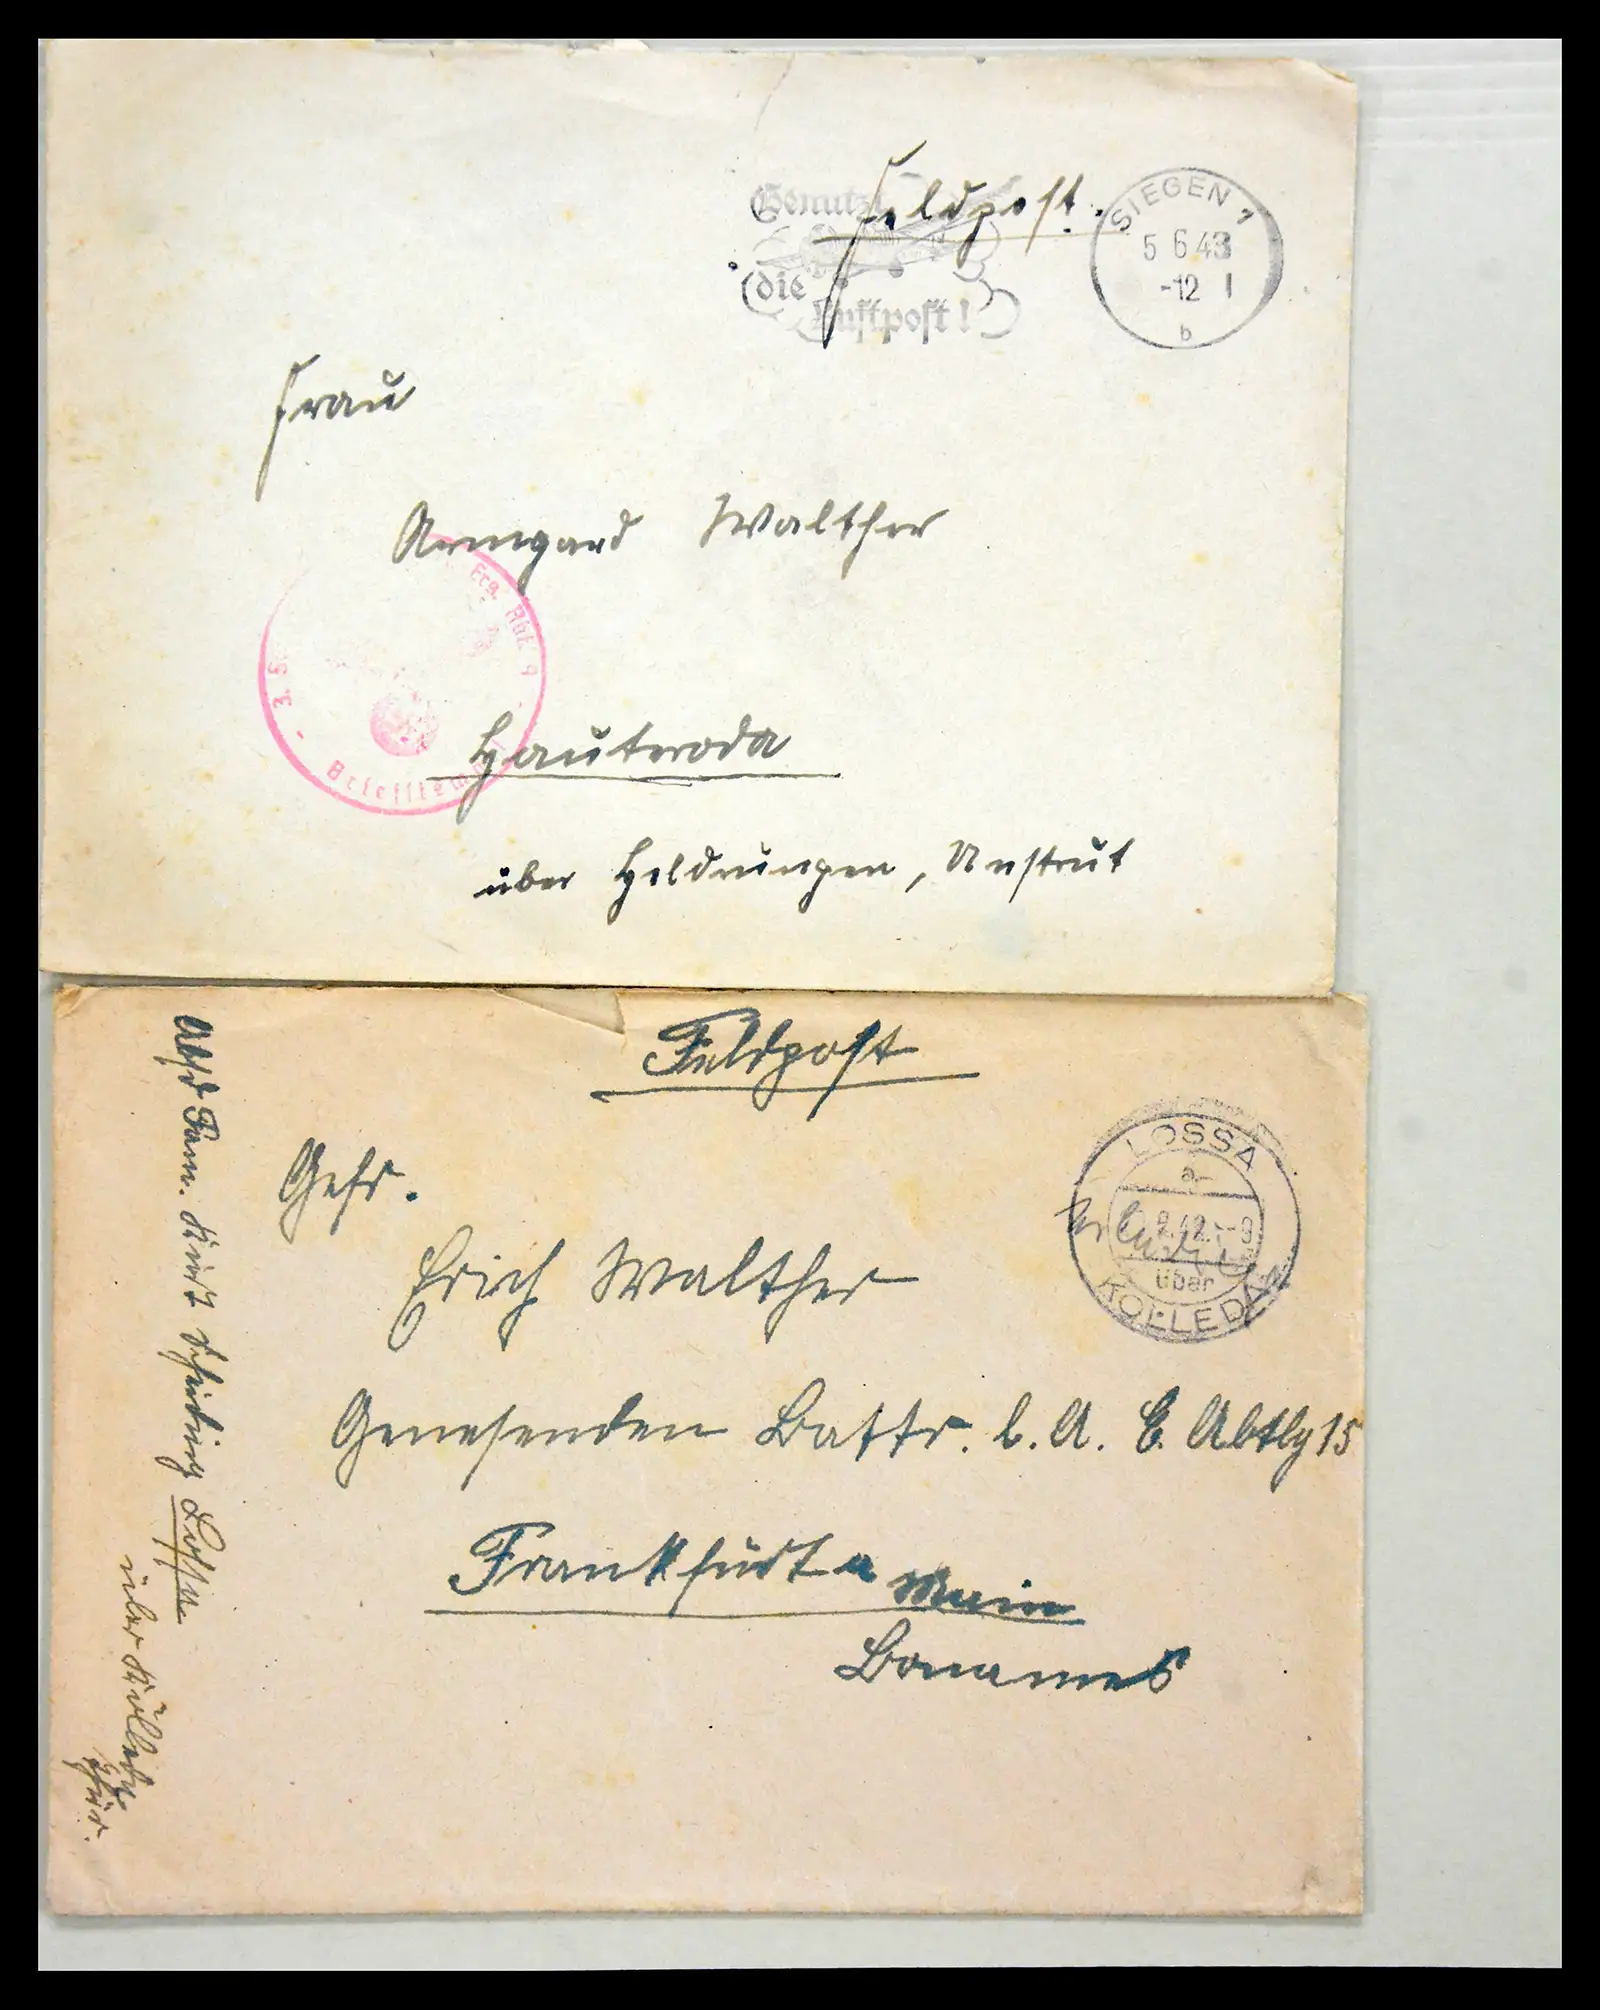 Feldpost.
Benutzt
die
Luftpost!
SIEGEN 1
5 6 43
-12
b
Frau
Armgard Walther
Ers. Abt. 9
Briefstem
Hauteroda
über Heldrungen, Unstrut
Feldpost
LOSSA
a
2.42.-9
über
KÖLLEDA
Gefr.
Erich Walther
Genesenden Battr. l. A. E. Abtlg 15
Frankfurt a Main
Bonames
Absd Fam. Kurt Scheiding Lossa
über Kölleda
Thür.